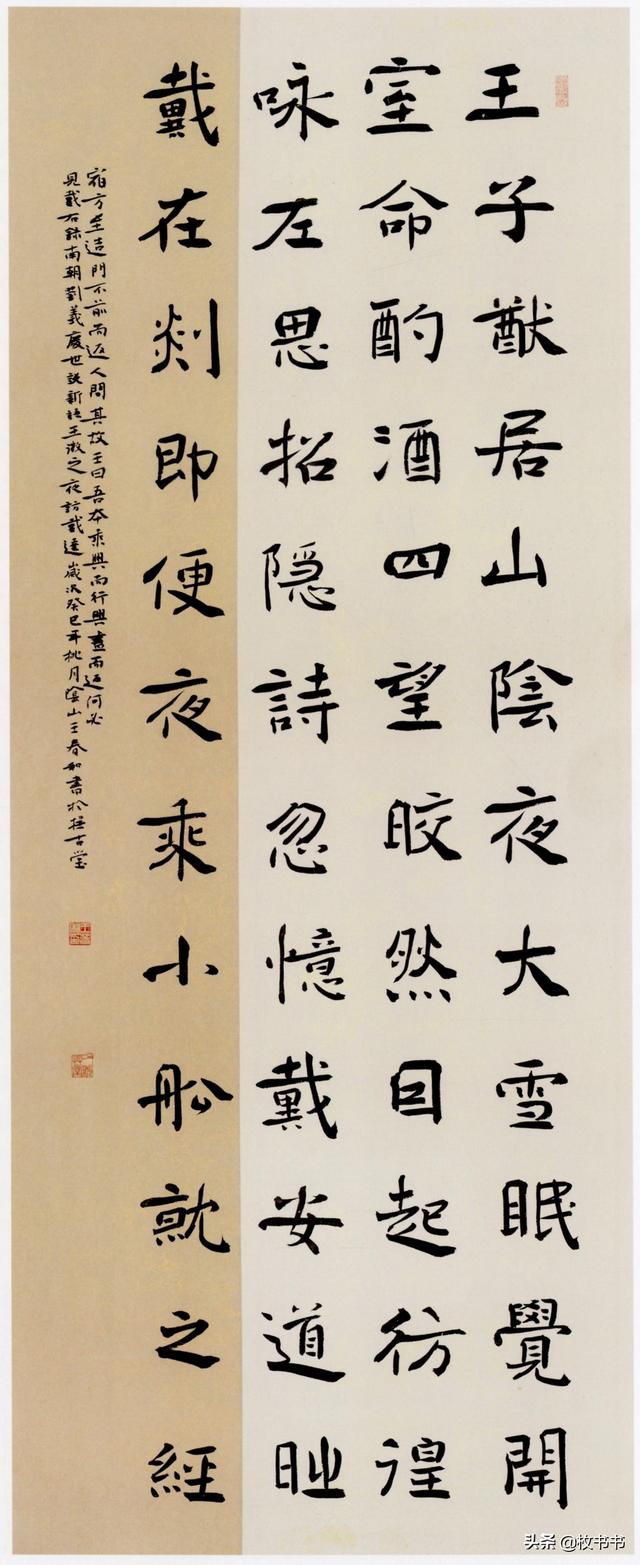 王子猷居山陰夜大雪眠覺開
室命酌酒四望皎然因起彷徨
咏左思招隱詩忽憶戴安道時
戴在剡即便夜乘小船就之經
宿方至造門不前而返人問其故王曰吾本乘興而行興盡而返何必
見戴右錄南朝劉義慶世說新語王徽之夜訪戴逵歲次癸巳年桃月陰山王春如書於古堂
头条 @枚书书